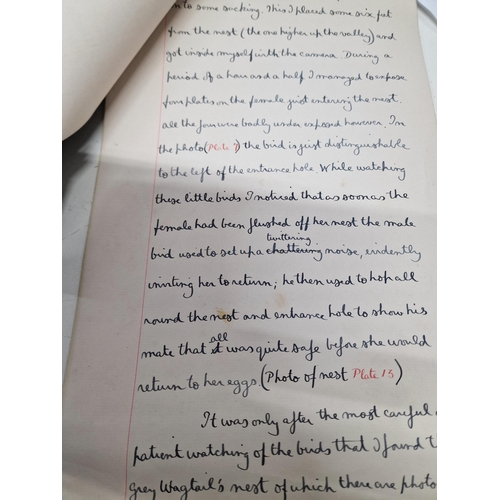 to some sacking. This I placed some six feet
from the nest (the one higher up the valley) and
got inside myself with the camera. During a
period of a hour and a half I managed to expose
four plates on the female just entering the nest.
all the four were badly under exposed however. In
the photo (Plate 9) the bird is just distinguishable
to the left of the entrance hole. While watching
these little birds I noticed that as soon as the
female had been flushed off her nest the male
twittering
bird used to set up a chattering noise, evidently
inviting her to return; he then used to hop all
round the nest and entrance hole to show his
all
mate that it was quite safe before she would
return to her eggs (Photo of nest Plate 13)
It was only after the most careful
patient watching of the birds that I found
grey Wagtail's nest of which there are photo